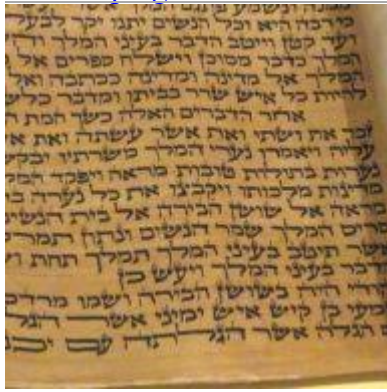 ונשמע
היא וכל הנשים יתנו יקר לבעל
ועד קטן וייטב הדבר בעיני המלך
המלך כדבר ממוכן וישלח ספרים אל
המלך אל מדינה ומדינה ככתבה ואל
להיות כל איש שרר בביתו ומדבר כלש
אחר הדברים האלה כשך חמת
זכר את ושתי ואת אשר עשתה ואת
עליה ויאמרו נערי המלך משרתיו יבק
נערות בתולות טובות מראה ויפקד המל
מדינות מלכותו ויקבצו את כל נערה
מראה אל שושן הבירה אל בית הנשי
סריס המלך שמר הנשים ונתון תמרו
אשר תיטב בעיני המלך תמלך תחת
דבר בעיני המלך ויעש כן
היה בשושן הבירה ושמו מרדכ
בן קיש איש ימיני אשר הגל
הגלה אשר הגלתה עם